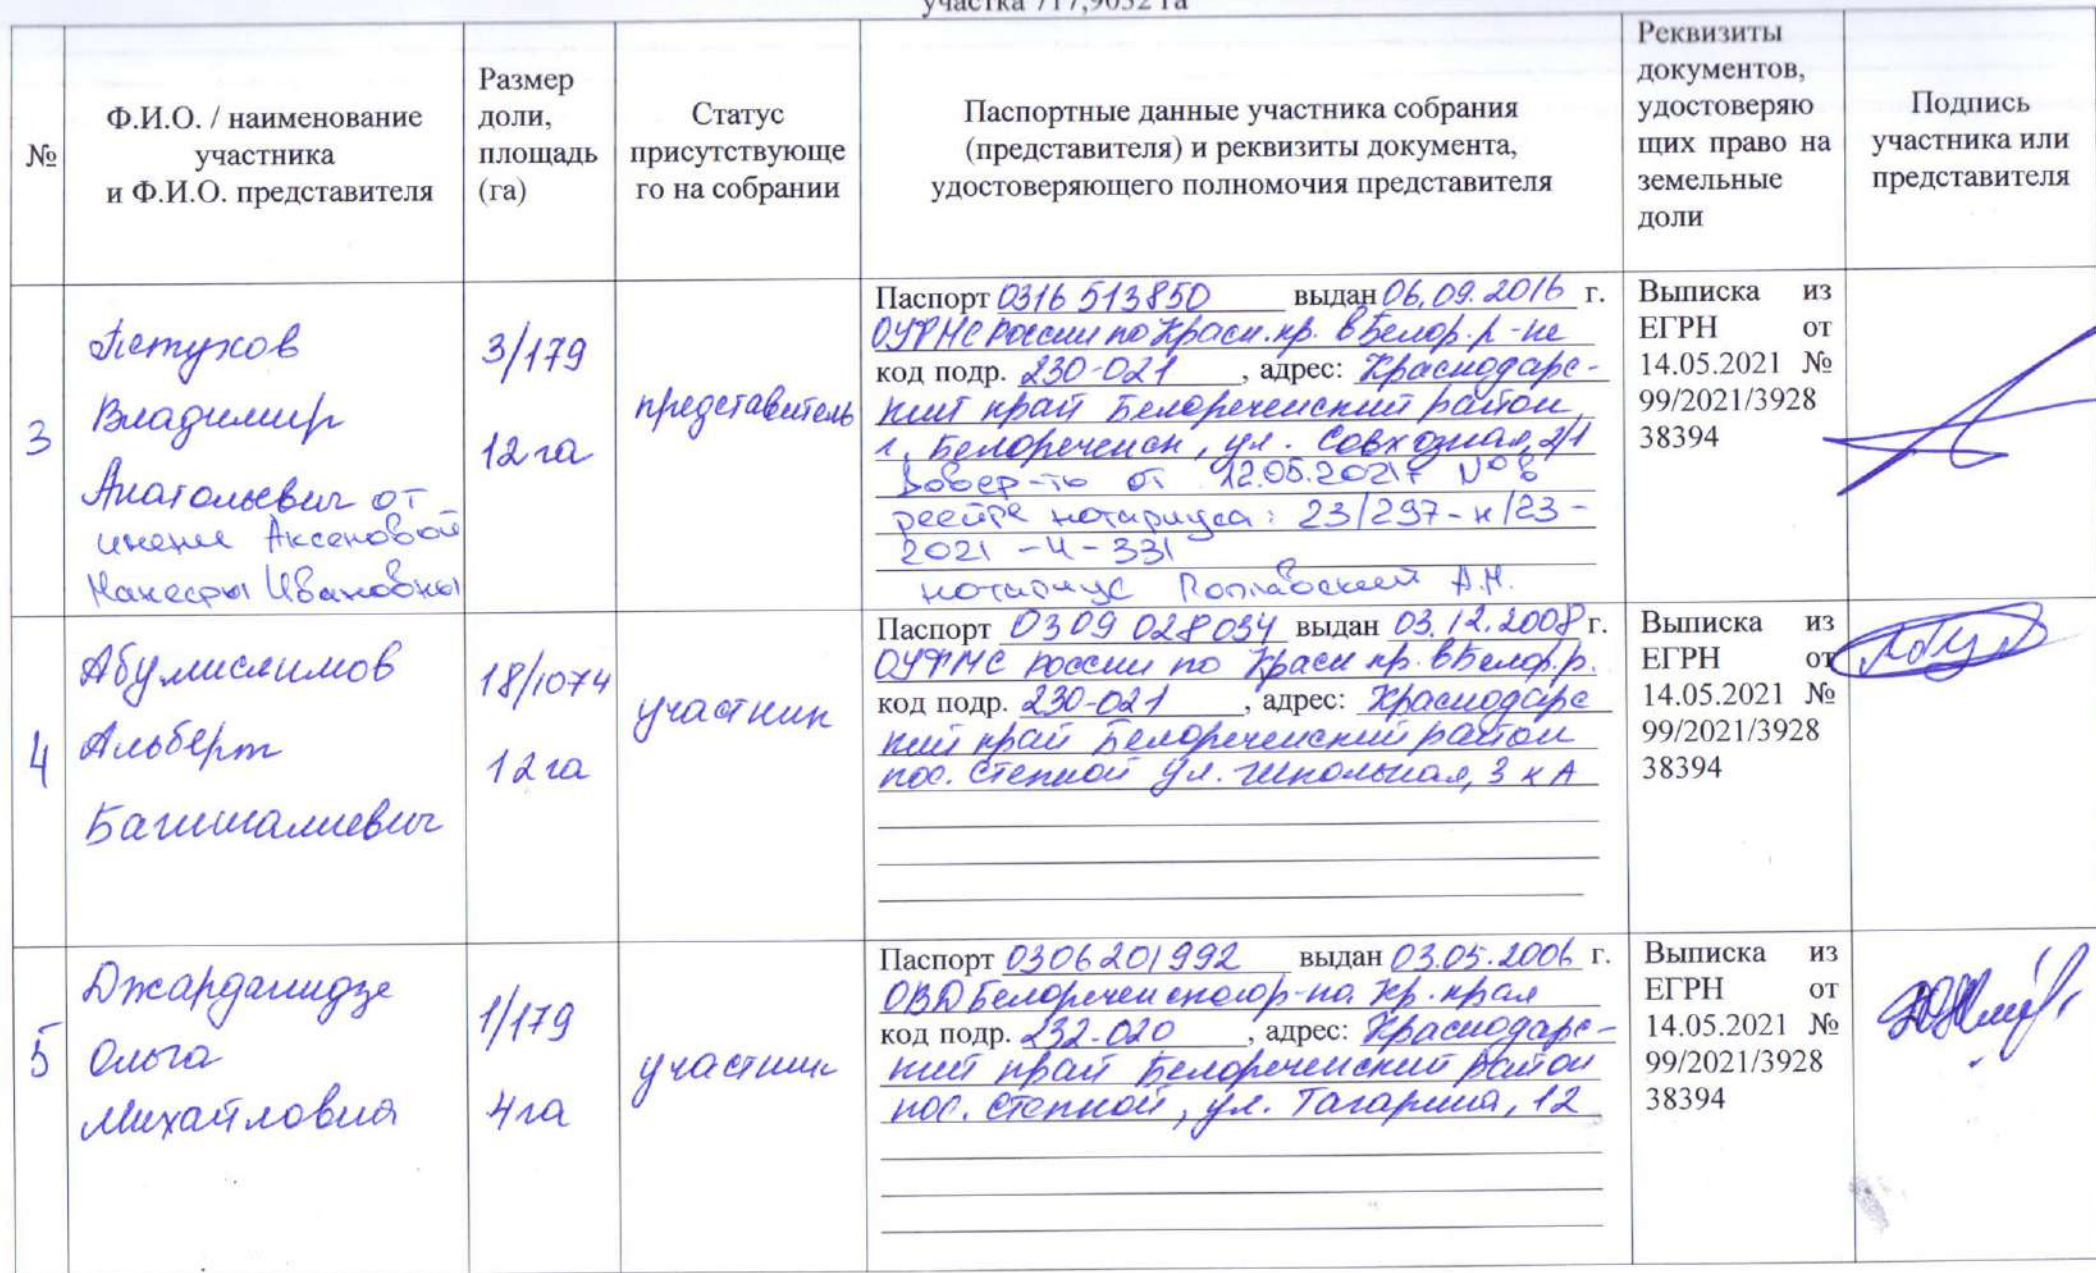 участка 717,9032 га
№
Ф.И.О. / наименование
участника
и Ф.И.О. представителя
Размер
доли,
площадь
(га)
Статус
присутствующе
го на собрании
Паспортные данные участника собрания
(представителя) и реквизиты документа,
удостоверяющего полномочия представителя
Реквизиты
документов,
удостоверяю
щих право на
земельные
доли
Подпись
участника или
представителя
3
Петухов
Владимир
Анатольевич от
имени Аксеновой
Ивановны
3/179
12 га
представитель
Паспорт 0316 513850 выдан 06.09.2016 г.
ОУФМС России по Красн. кр. в Белор. р-не
код подр. 230-021, адрес: Краснодарс-
кий край Белореченский район,
г. Белореченск, ул. Совхозная, 2/1
Довер-ть от 12.05.2021г № в
реестре нотариуса: 23/297-н/23-
2021-4-331
нотариус Поплавский А.Н.
Выписка из
ЕГРН от
14.05.2021 №
99/2021/3928
38394
4
Абумислимов
Альберт
Багишалиевич
18/1074
12 га
участник
Паспорт 0309 028034 выдан 03.12.2008 г.
ОУФМС России по Красн кр. в Белор. р.
код подр. 230-021, адрес: Краснодарс
кий край Белореченский район
пос. Степной ул. Школьная, 3 к А
Выписка из
ЕГРН от
14.05.2021 №
99/2021/3928
38394
5
Джарданидзе
Ольга
Михайловна
1/179
4 га
участник
Паспорт 0306 201992 выдан 03.05.2006 г.
ОВД Белореченского р-на. Кр. края
код подр. 232-020, адрес: Краснодарс-
кий край Белореченский район
пос. Степной, ул. Гагарина, 12
Выписка из
ЕГРН от
14.05.2021 №
99/2021/3928
38394